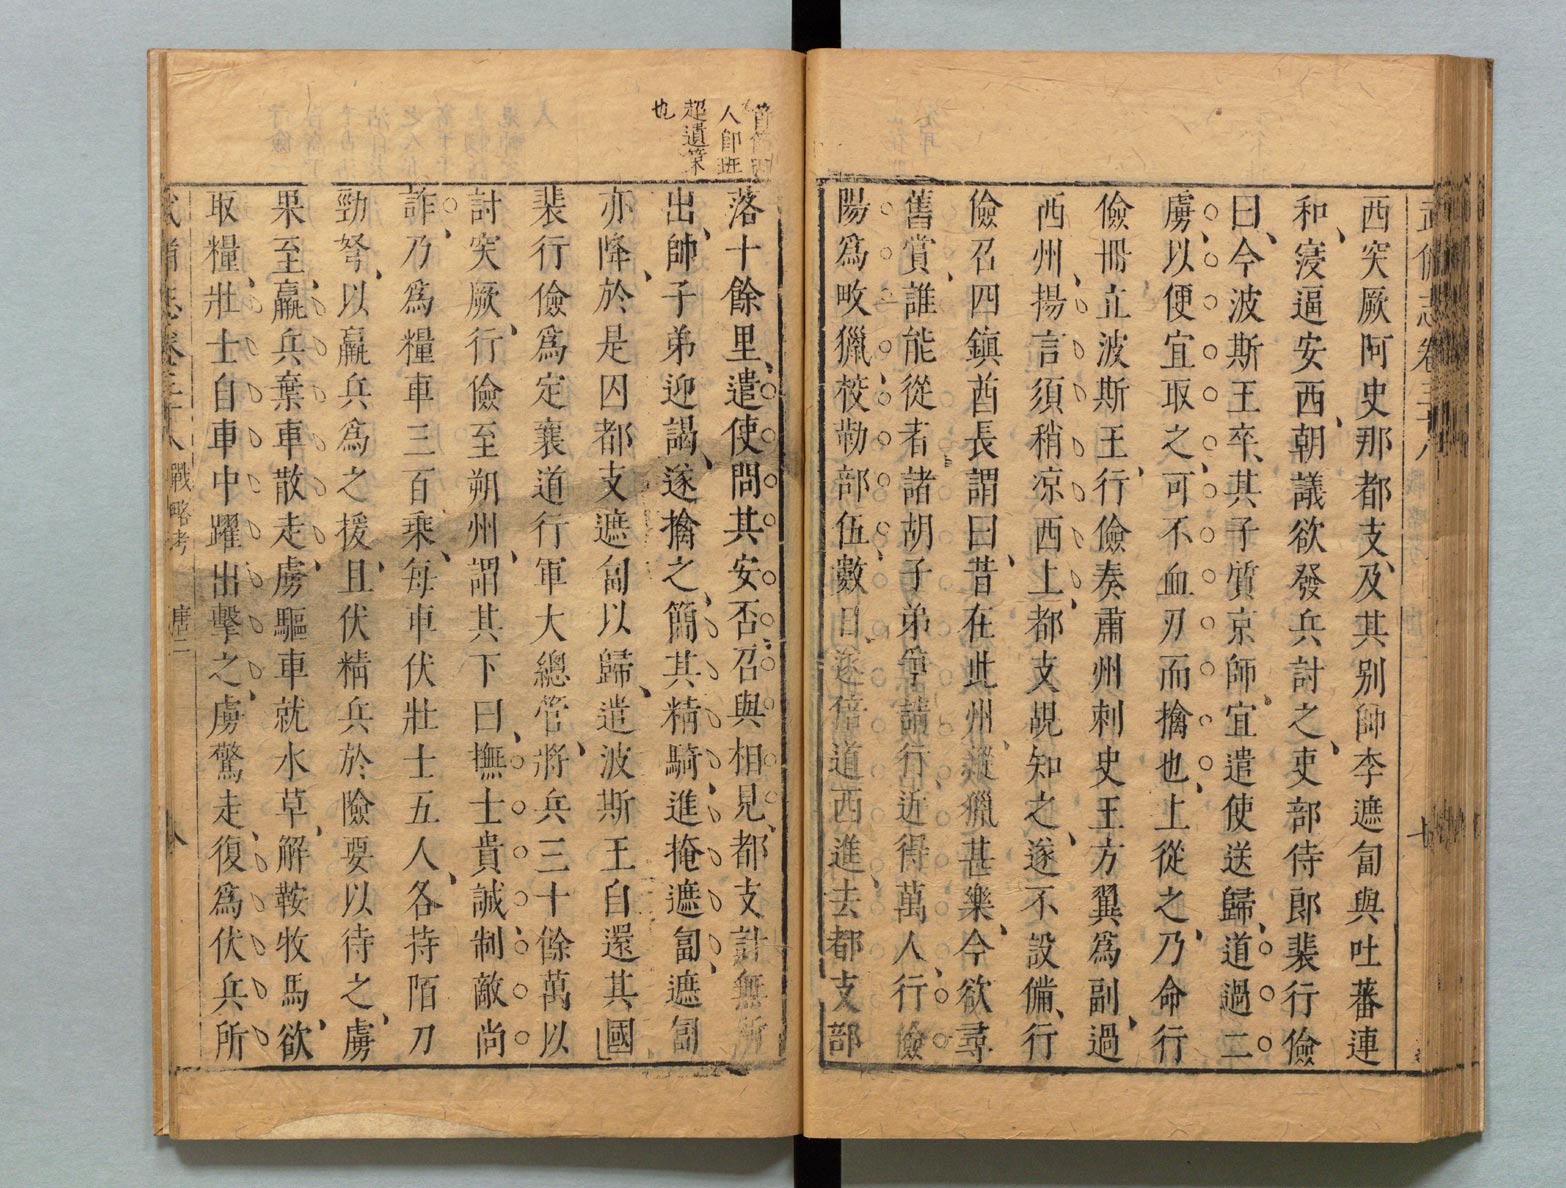 武備志卷三十八
西突厥阿史那都支及其别帥李遮匐與吐蕃連
和寖逼安西朝議欲發兵討之吏部侍郎裴行儉
曰今波斯王卒其子質京師宜遣使送歸道過二
虜以便宜取之可不血刃而擒也上從之乃命行
儉冊立波斯王行儉奏肅州刺史王方翼爲副過
西州揚言須稍凉西上都支覘知之遂不設備行
儉召四鎮酋長謂曰昔在此州縱獵甚樂今欲尋
舊賞誰能從者諸胡子弟爭請行近得萬人行儉
陽爲畋獵校勒部伍數日遂倍道西進去都支部
皆
人卽班
超遺策
也
落十餘里遣使問其安否召與相見都支計無所
出帥子弟迎謁遂擒之簡其精騎進掩遮匐遮匐
亦降於是囚都支遮匐以歸遣波斯王自還其國
裴行儉爲定襄道行軍大總管將兵三十餘萬以
討突厥行儉至朔州謂其下曰撫士貴誠制敵尚
詐乃爲糧車三百乘每車伏壯士五人各持陌刀
勁弩以羸兵爲之援且伏精兵於險要以待之虜
果至羸兵棄車散走虜驅車就水草解鞍牧馬欲
取糧壯士自車中躍出擊之虜驚走復爲伏兵所
武備志卷三十八 戰略考 唐二 八